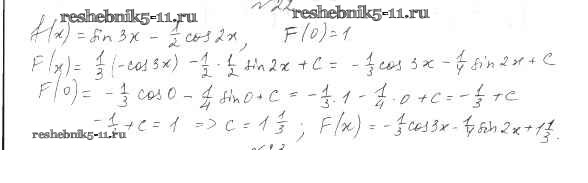 №22
reshebnik5-11.ru reshebnik5-11.ru
f(x) = sin 3x - 1/2 cos 2x, F(0) = 1
F(x) = 1/3 (-cos 3x) - 1/2 · 1/2 sin 2x + C = -1/3 cos 3x - 1/4 sin 2x + C
F(0) = -1/3 cos 0 - 1/4 sin 0 + C = -1/3 · 1 - 1/4 · 0 + C = -1/3 + C
-1/3 + C = 1 => C = 1 1/3; F(x) = -1/3 cos 3x - 1/4 sin 2x + 1 1/3.
reshebnik5-11.ru